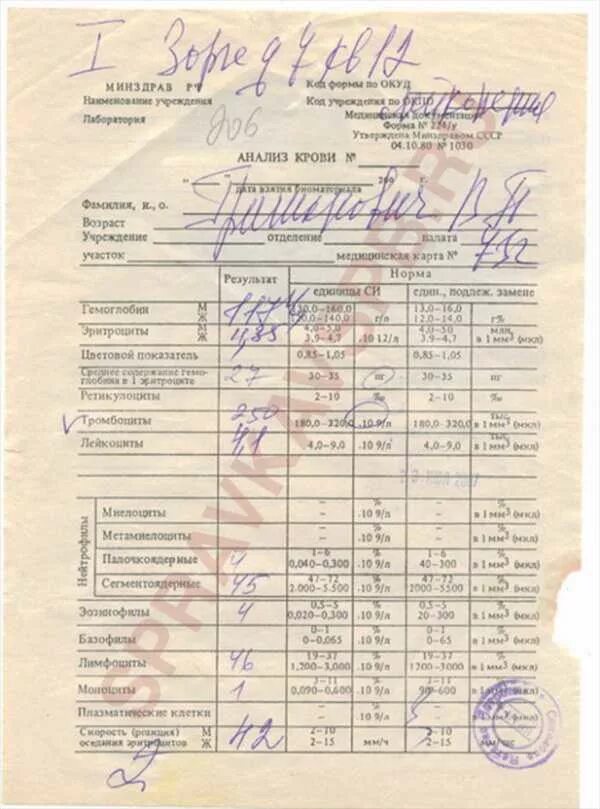 I Зорге д 7 кв 12
МИНЗДРАВ РФ
Код формы по ОКУД
Наименование учреждения
Код учреждения по ОКПО
Лаборатория
Медицинская документация
206
Форма № 224/у
Утверждена Минздравом СССР
04.10.80 № 1030
АНАЛИЗ КРОВИ №
" " 200 г.
дата взятия биоматериала
Фамилия, и., о. В П
Возраст
Учреждение отделение палата
участок медицинская карта № 732
Результат Норма
единицы СИ един., подлеж. замене
Гемоглобин М 117 130,0–160,0 13,0–16,0
Ж 120,0–140,0 г/л 12,0–14,0 г%
Эритроциты М 4,0–5,0 4,0–5,0 млн.
Ж 3,9–4,7 .10 12/л 3,9–4,7 в 1 мм³ (мкл)
Цветовой показатель 0,85–1,05 0,85–1,05
Среднее содержание гемоглобина в 1 эритроците 27 30–35 пг 30–35 пг
Ретикулоциты 2–10 ‰ 2–10 ‰
Тромбоциты 250 180,0–320,0 .10 9/л 180,0–320,0 тыс. в 1 мм³ (мкл)
Лейкоциты 4,0–9,0 .10 9/л 4,0–9,0 тыс. в 1 мм³ (мкл)
Нейтрофилы
Миелоциты – % – %
– .10 9/л – в 1 мм³ (мкл)
Метамиелоциты – % – %
– .10 9/л – в 1 мм³ (мкл)
Палочкоядерные 4 1–6 % 1–6 %
0,040–0,300 .10 9/л 40–300 в 1 мм³ (мкл)
Сегментоядерные 45 47–72 % 47–72 %
2.000–5.500 .10 9/л 2000–5500 в 1 мм³ (мкл)
Эозинофилы 4 0,5–5 % 0,5–5 %
0,020–0,300 .10 9/л 20–300 в 1 мм³ (мкл)
Базофилы 0–1 % 0–1 %
0–0,065 .10 9/л 0–65 в 1 мм³ (мкл)
Лимфоциты 46 19–37 % 19–37 %
1,200–3,000 .10 9/л 1200–3000 в 1 мм³ (мкл)
Моноциты 1 3–11 % 3–11 %
0,090–0,600 .10 9/л 90–600 в 1 мм³ (мкл)
Плазматические клетки – % – %
– .10 9/л – в 1 мм³ (мкл)
Скорость (реакция) М 42 2–10 2–10
оседания эритроцитов Ж 2–15 мм/ч 2–15 мм/час
SPRAVKAVSPB.RU